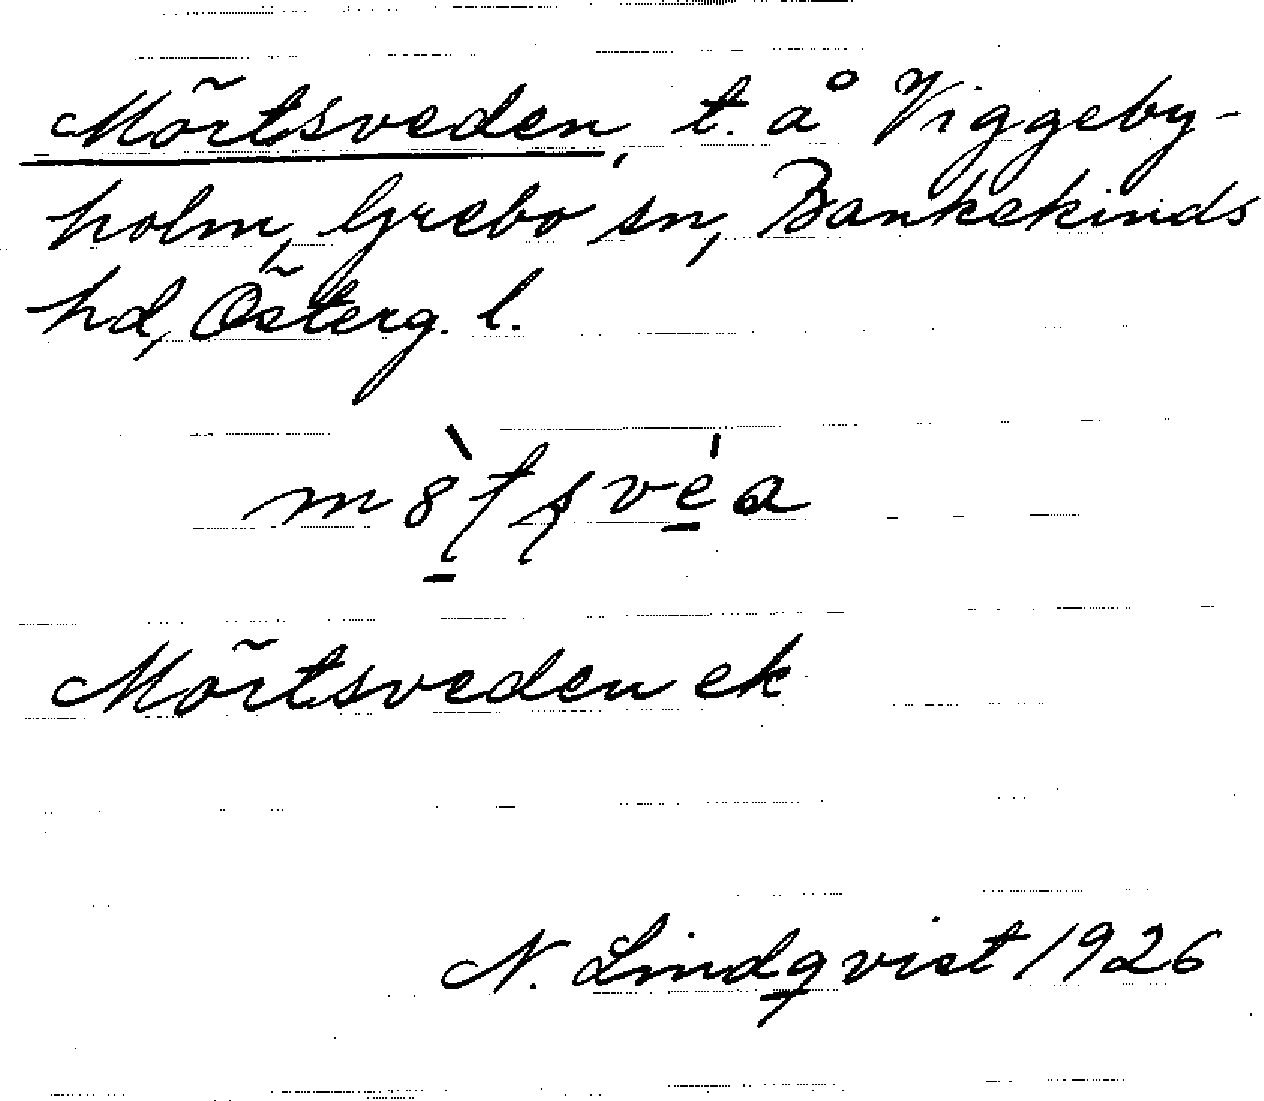 Mörtsveden, t. å Viggeby-
holm, Grebo sn, Bankekinds
hd, Österg. l.
Mörtsveden ek
N. Lindqvist 1926